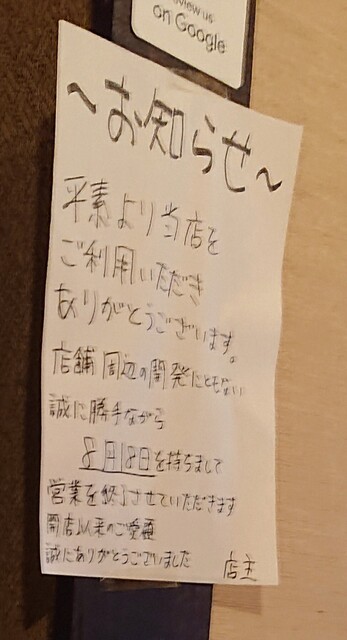 review us
on Google
～お知らせ～
平素より当店を
ご利用いただき
ありがとうございます。
店舗周辺の開発にともない
誠に勝手ながら
8月18日を持ちまして
営業を終了させていただきます
開店以来のご愛顧
誠にありがとうございました 店主